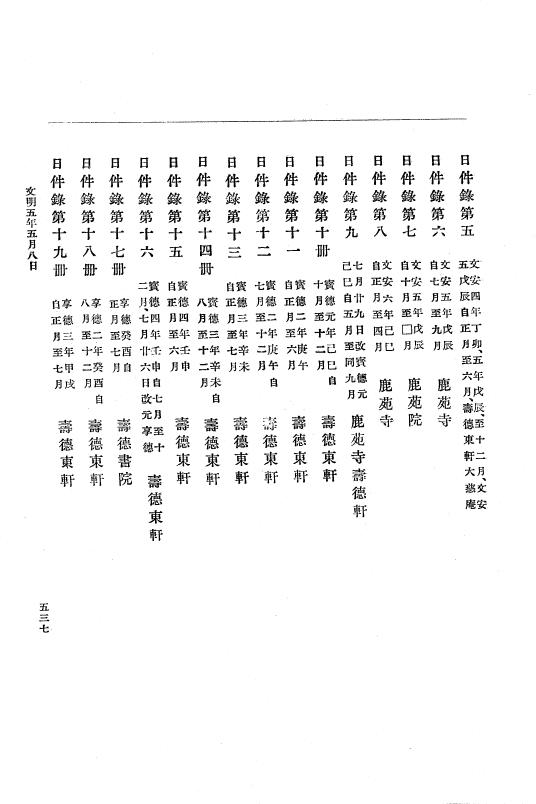 日件錄第五 文安四年丁卯、五年戊辰、至十二月、文安
五戊辰自正月至六月、壽德東軒大慈庵
日件錄第六 文安五年戊辰
自七月至九月 鹿苑寺
日件錄第七 文安五年戊辰
自十月至□月 鹿苑院
日件錄第八 文安六年己巳
自正月至四月 鹿苑寺
日件錄第九 七月廿九日改寳德元
己巳自五月至同九月 鹿苑寺壽德軒
日件錄第十冊 寳德元年己巳自
十月至十二月 壽德東軒
日件錄第十一 寳德二年庚午
自正月至六月 壽德東軒
日件錄第十二 寳德二年庚午自
七月至十二月 壽德東軒
日件錄第十三 寳德三年辛未
自正月至七月 壽德東軒
日件錄第十四冊 寳德三年辛未自
八月至十二月 壽德東軒
日件錄第十五 寳德四年壬申
自正月至六月 壽德東軒
日件錄第十六 寳德四年壬申自七月至十
二月、七月廿六日改元享德 壽德東軒
日件錄第十七冊 享德癸酉自
正月至七月 壽德書院
日件錄第十八冊 享德二年癸酉自
八月至十二月 壽德東軒
日件錄第十九冊 享德三年甲戌
自正月至七月 壽德東軒
文明五年五月八日
五三七